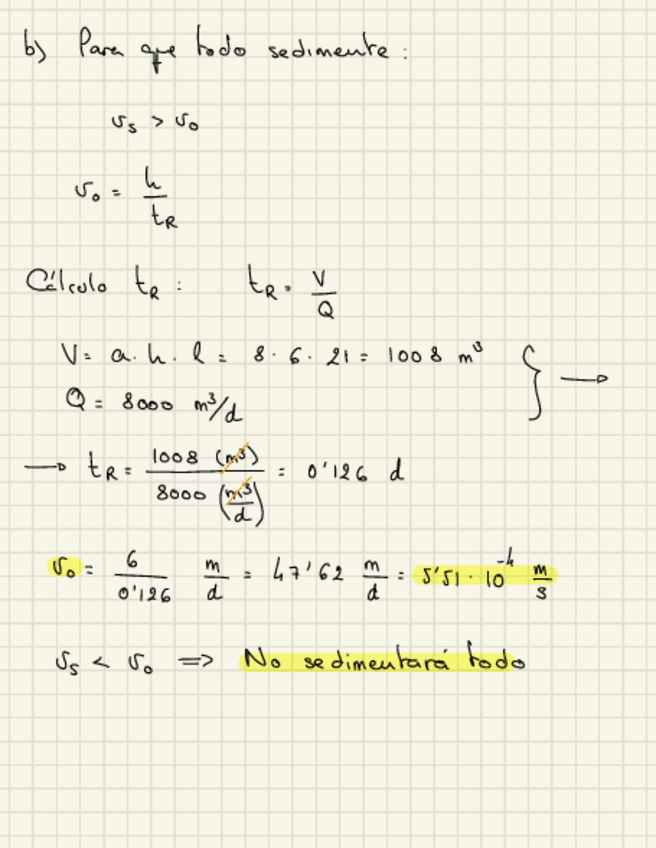 b) Para que todo sedimente:
vs > vo
vo = h / tR
Cálculo tR: tR = V / Q
V = a . h . l = 8 . 6 . 21 = 1008 m³
Q = 8000 m³/d
} →
→ tR = 1008 (m³) / 8000 (m³/d) = 0'126 d
vo = 6 / 0'126 m/d = 47'62 m/d = 5'51 · 10⁻⁴ m/s
vs < vo => No sedimentará todo